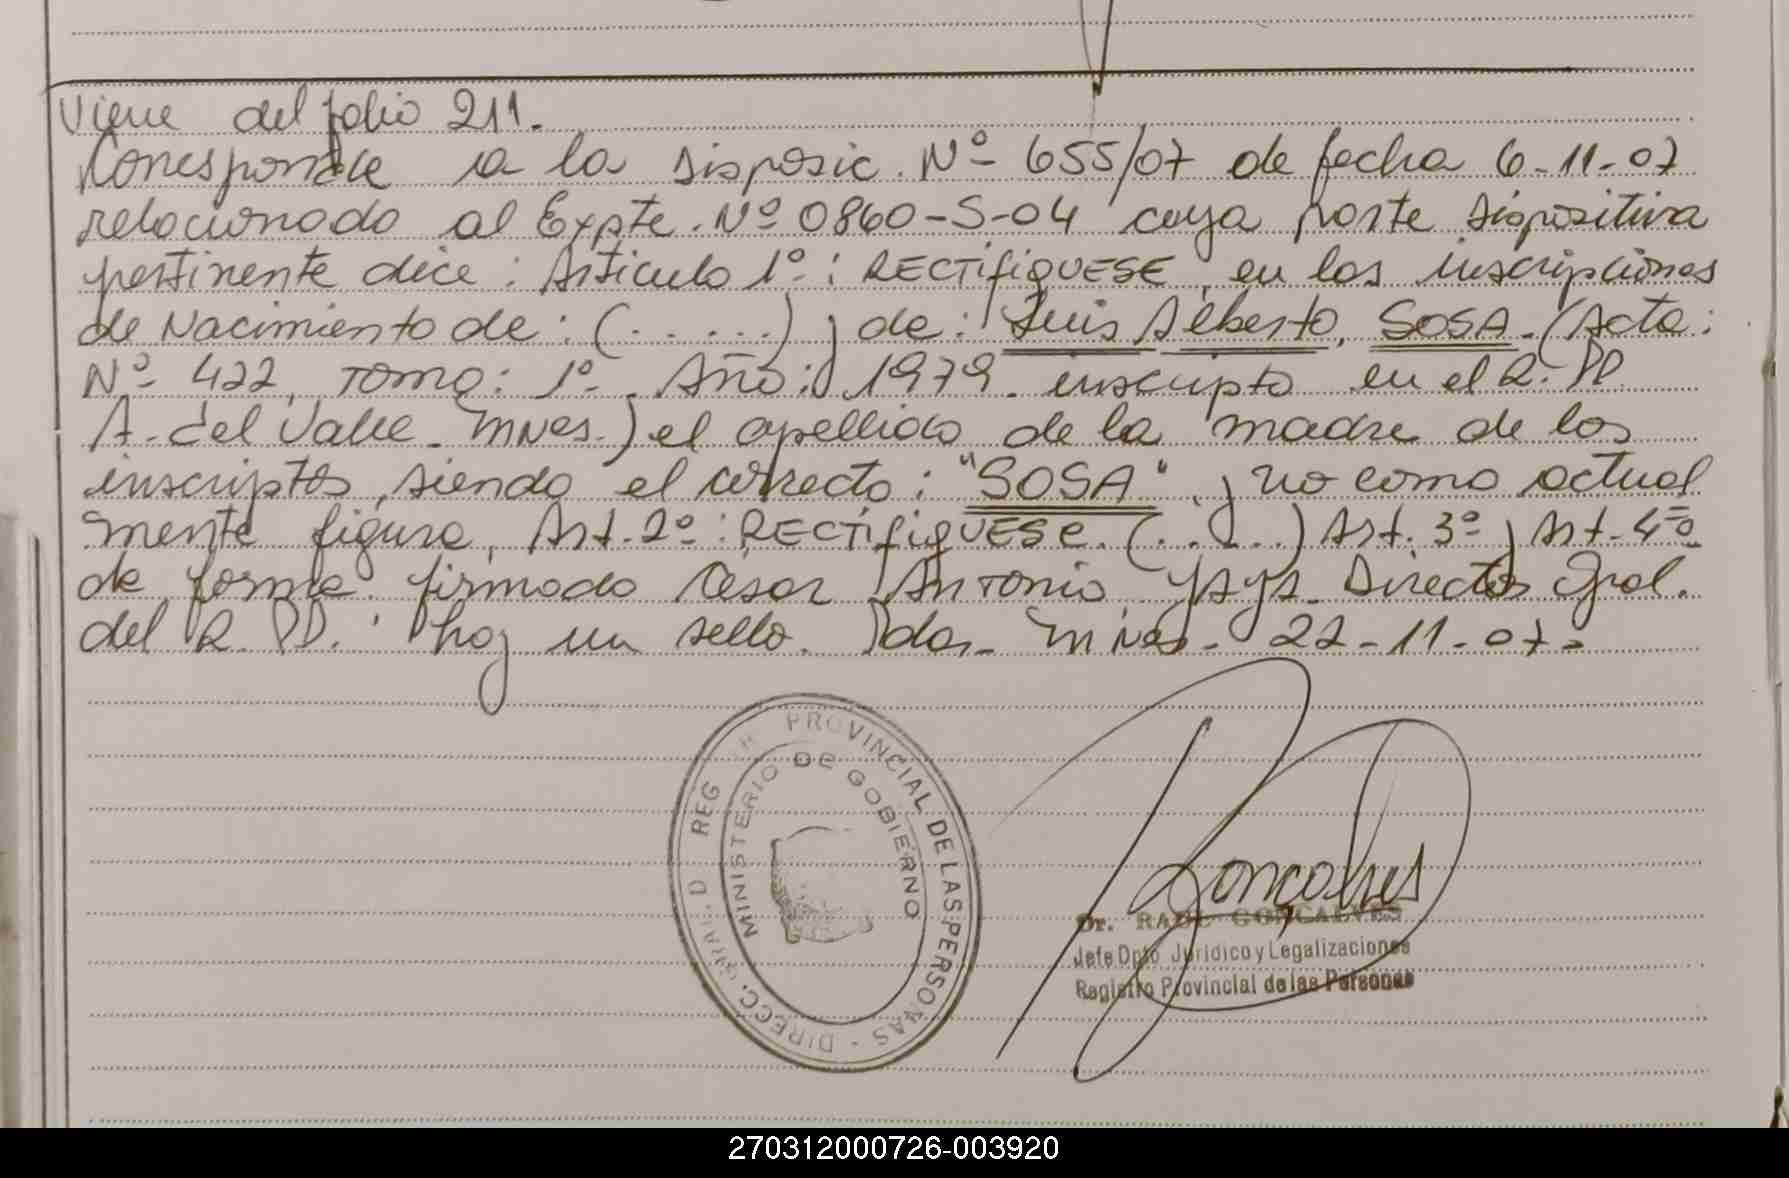 Viene del folio 211.
Corresponde a la Disposic. Nº 655/07 de fecha 6-11-07
relacionado al Expte. Nº 0860-S-04 cuya parte dispositiva
pertinente dice: Articulo 1º: RECTifiQUESE, en las inscripciones
de Nacimiento de: (......) y de: Luis Alberto, SOSA. (Acta:
Nº 422, Tomo: 1º. Año: 1979. inscripto en el R. PP.
A. del Valle. Mnes.) el apellido de la madre de los
inscriptos, siendo el correcto: "SOSA". y no como actual
mente figura, Art. 2º: RECTifiqUESE. (......) Art. 3º y Art. 4º
de forma. firmado Cesar Antonio, Director Gral.
del R. PP. hay un sello. Pdas. Mnes. 22-11-07-
PROVINCIAL DE LAS PERSONAS - DIRECC. GRAL. D REG
MINISTERIO DE GOBIERNO
Goncalves
Dr. RAUL GONCALVES
Jefe Dpto Jurídico y Legalizaciones
Registro Provincial de las Personas
270312000726-003920